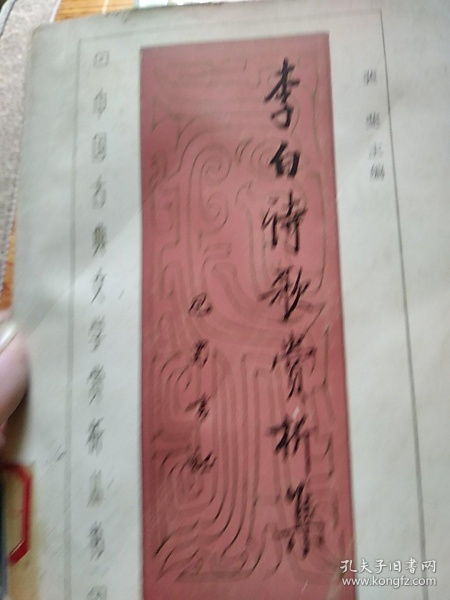 裴斐主编
李白诗歌赏析集
中国古典文学赏析丛书
孔夫子旧书网
www.kongfz.com